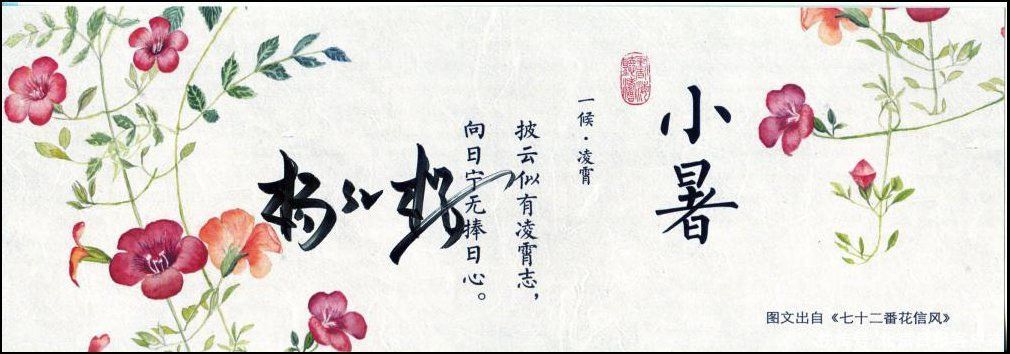 小暑
一候·凌霄
披云似有凌霄志，
向日宁无捧日心。
图文出自《七十二番花信风》